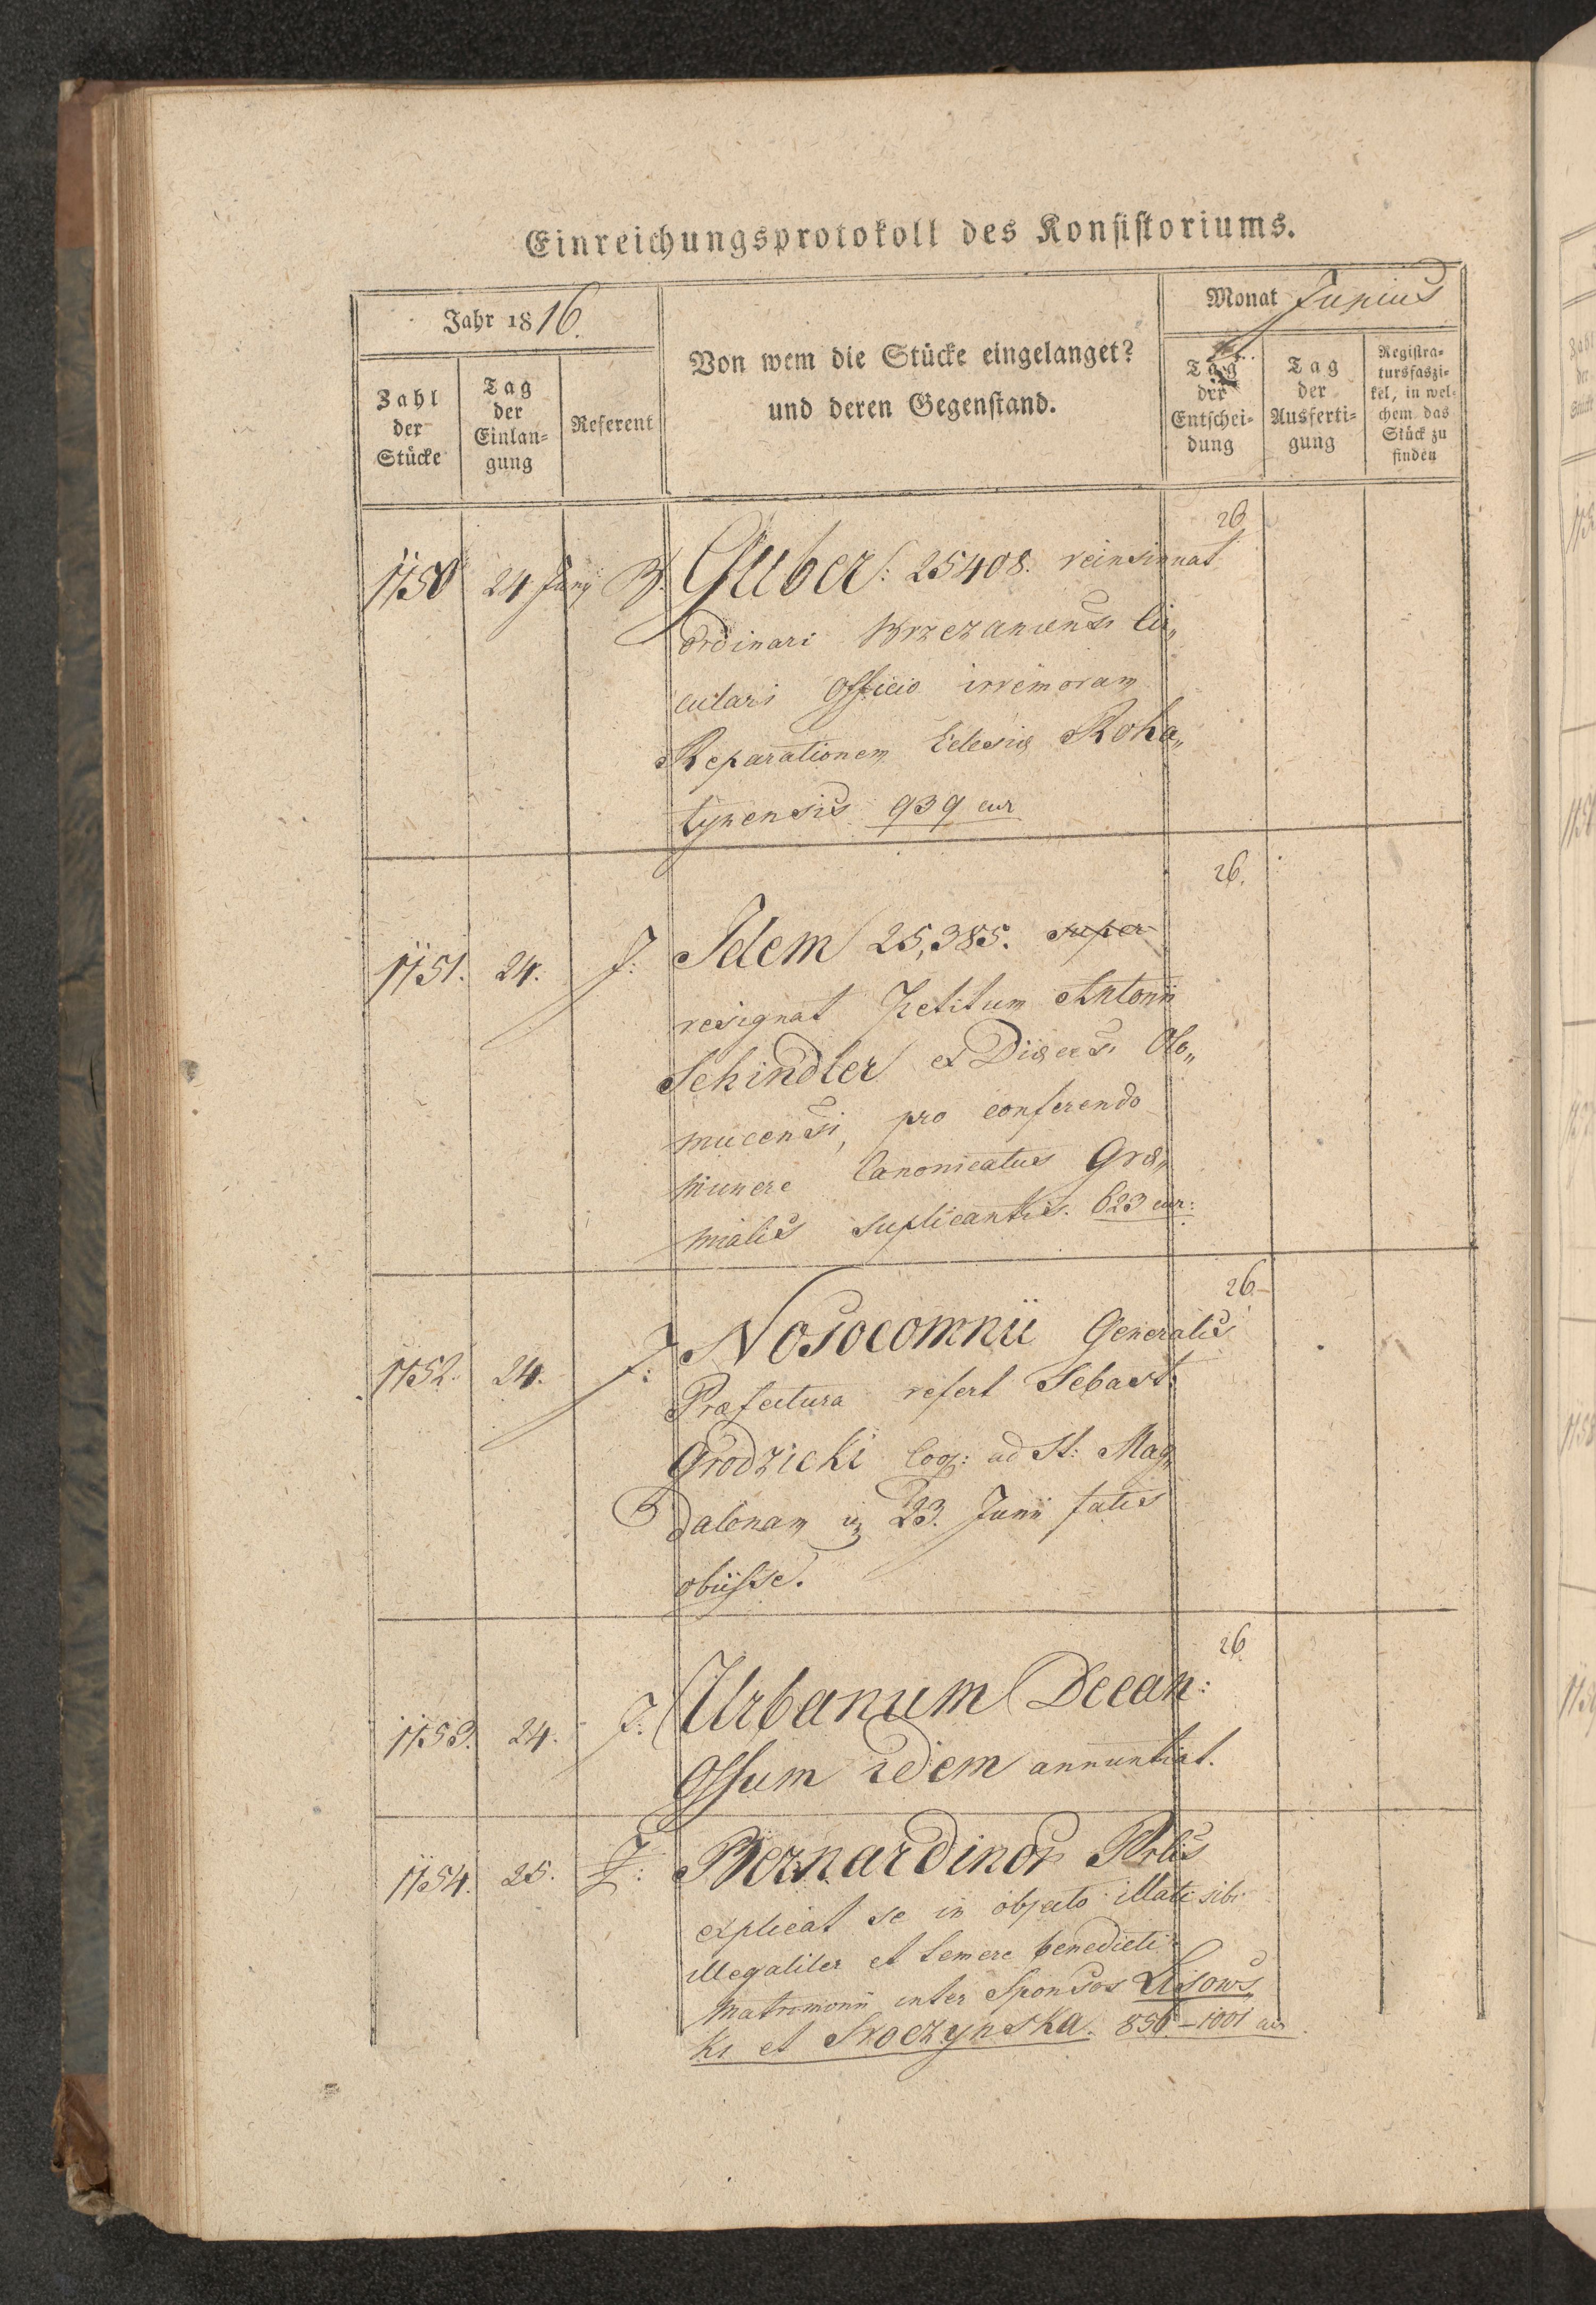 Einreichungsprotokoll des Konsistoriums.
Jahr 1816.
Von wem die Stücke eingelanget?
und deren Gegenstand.
Monat Junius
Zahl der Stücke
Tag der Einlan=gung
Referent
Tag der Entschei=dung
Tag der Ausferti=gung
Registra=tursfaszi=kel, in wel=chem das Stück zu finden
26
1150 24 Juny B. Guber: 25408. reinsinuat
ordinari Brzezaniensi Cir„
culari Officio irremoram
Reparationem Eclesiæ Roha„
tynensis 939 cur
26.
1151. 24. J: Idem 25,385. super
resignat Petitum Antonii
Schindler ex Dioecesi Olo„
mucensi, pro conferendo
munere Canonicatus Gre„
mialis suplicantis. 623 cur:
26.
1152. 24. J: Nosocomnii Generalis
Præfectura refert Sebast:
Grodzicki Coop: ad St: Mag„
dalenam 23. Junii fatis
obiisse.
26.
1153. 24. J. Urbanum Decan:
Offum idem annuntiat.
1154. 25. J: Bernardinor Prlis
explicat se in objecto illati sibi
illegaliter et temere benedicti
Matromonii inter Sponsos Lisows„
ki et Skoczynska. 856.–1001 cur